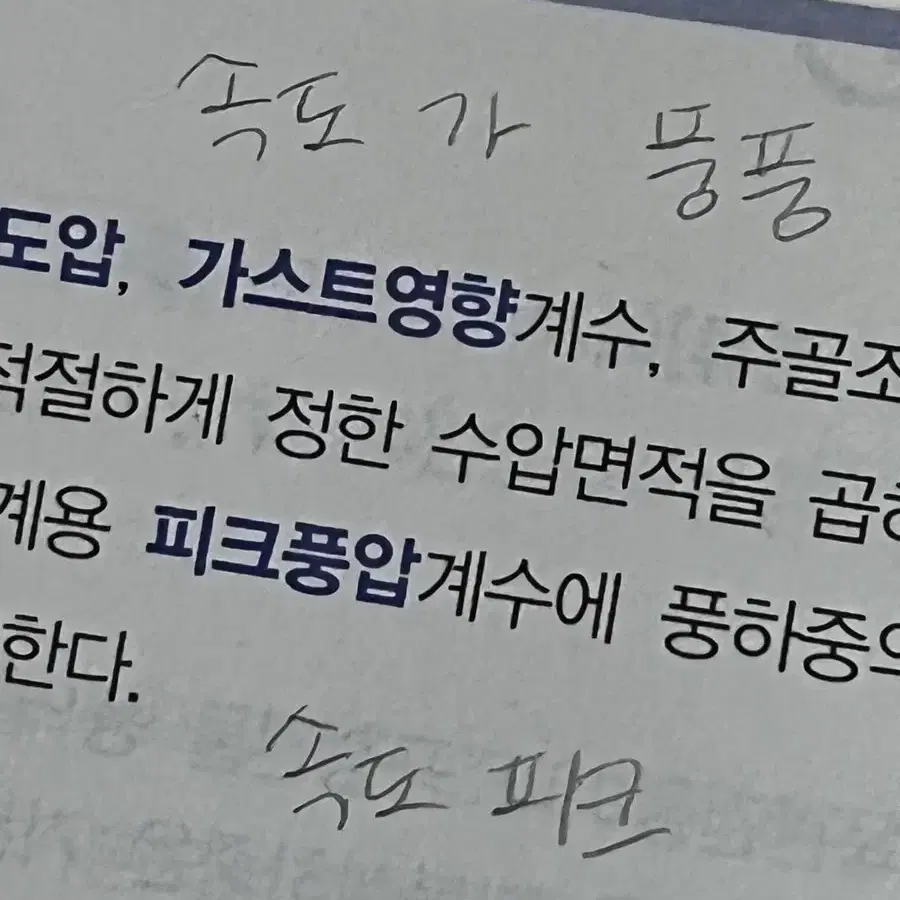 속도 가 풍풍
도압, 가스트영향계수, 주골조
적절하게 정한 수압면적을 곱하
계용 피크풍압계수에 풍하중의
한다.
속도 피크